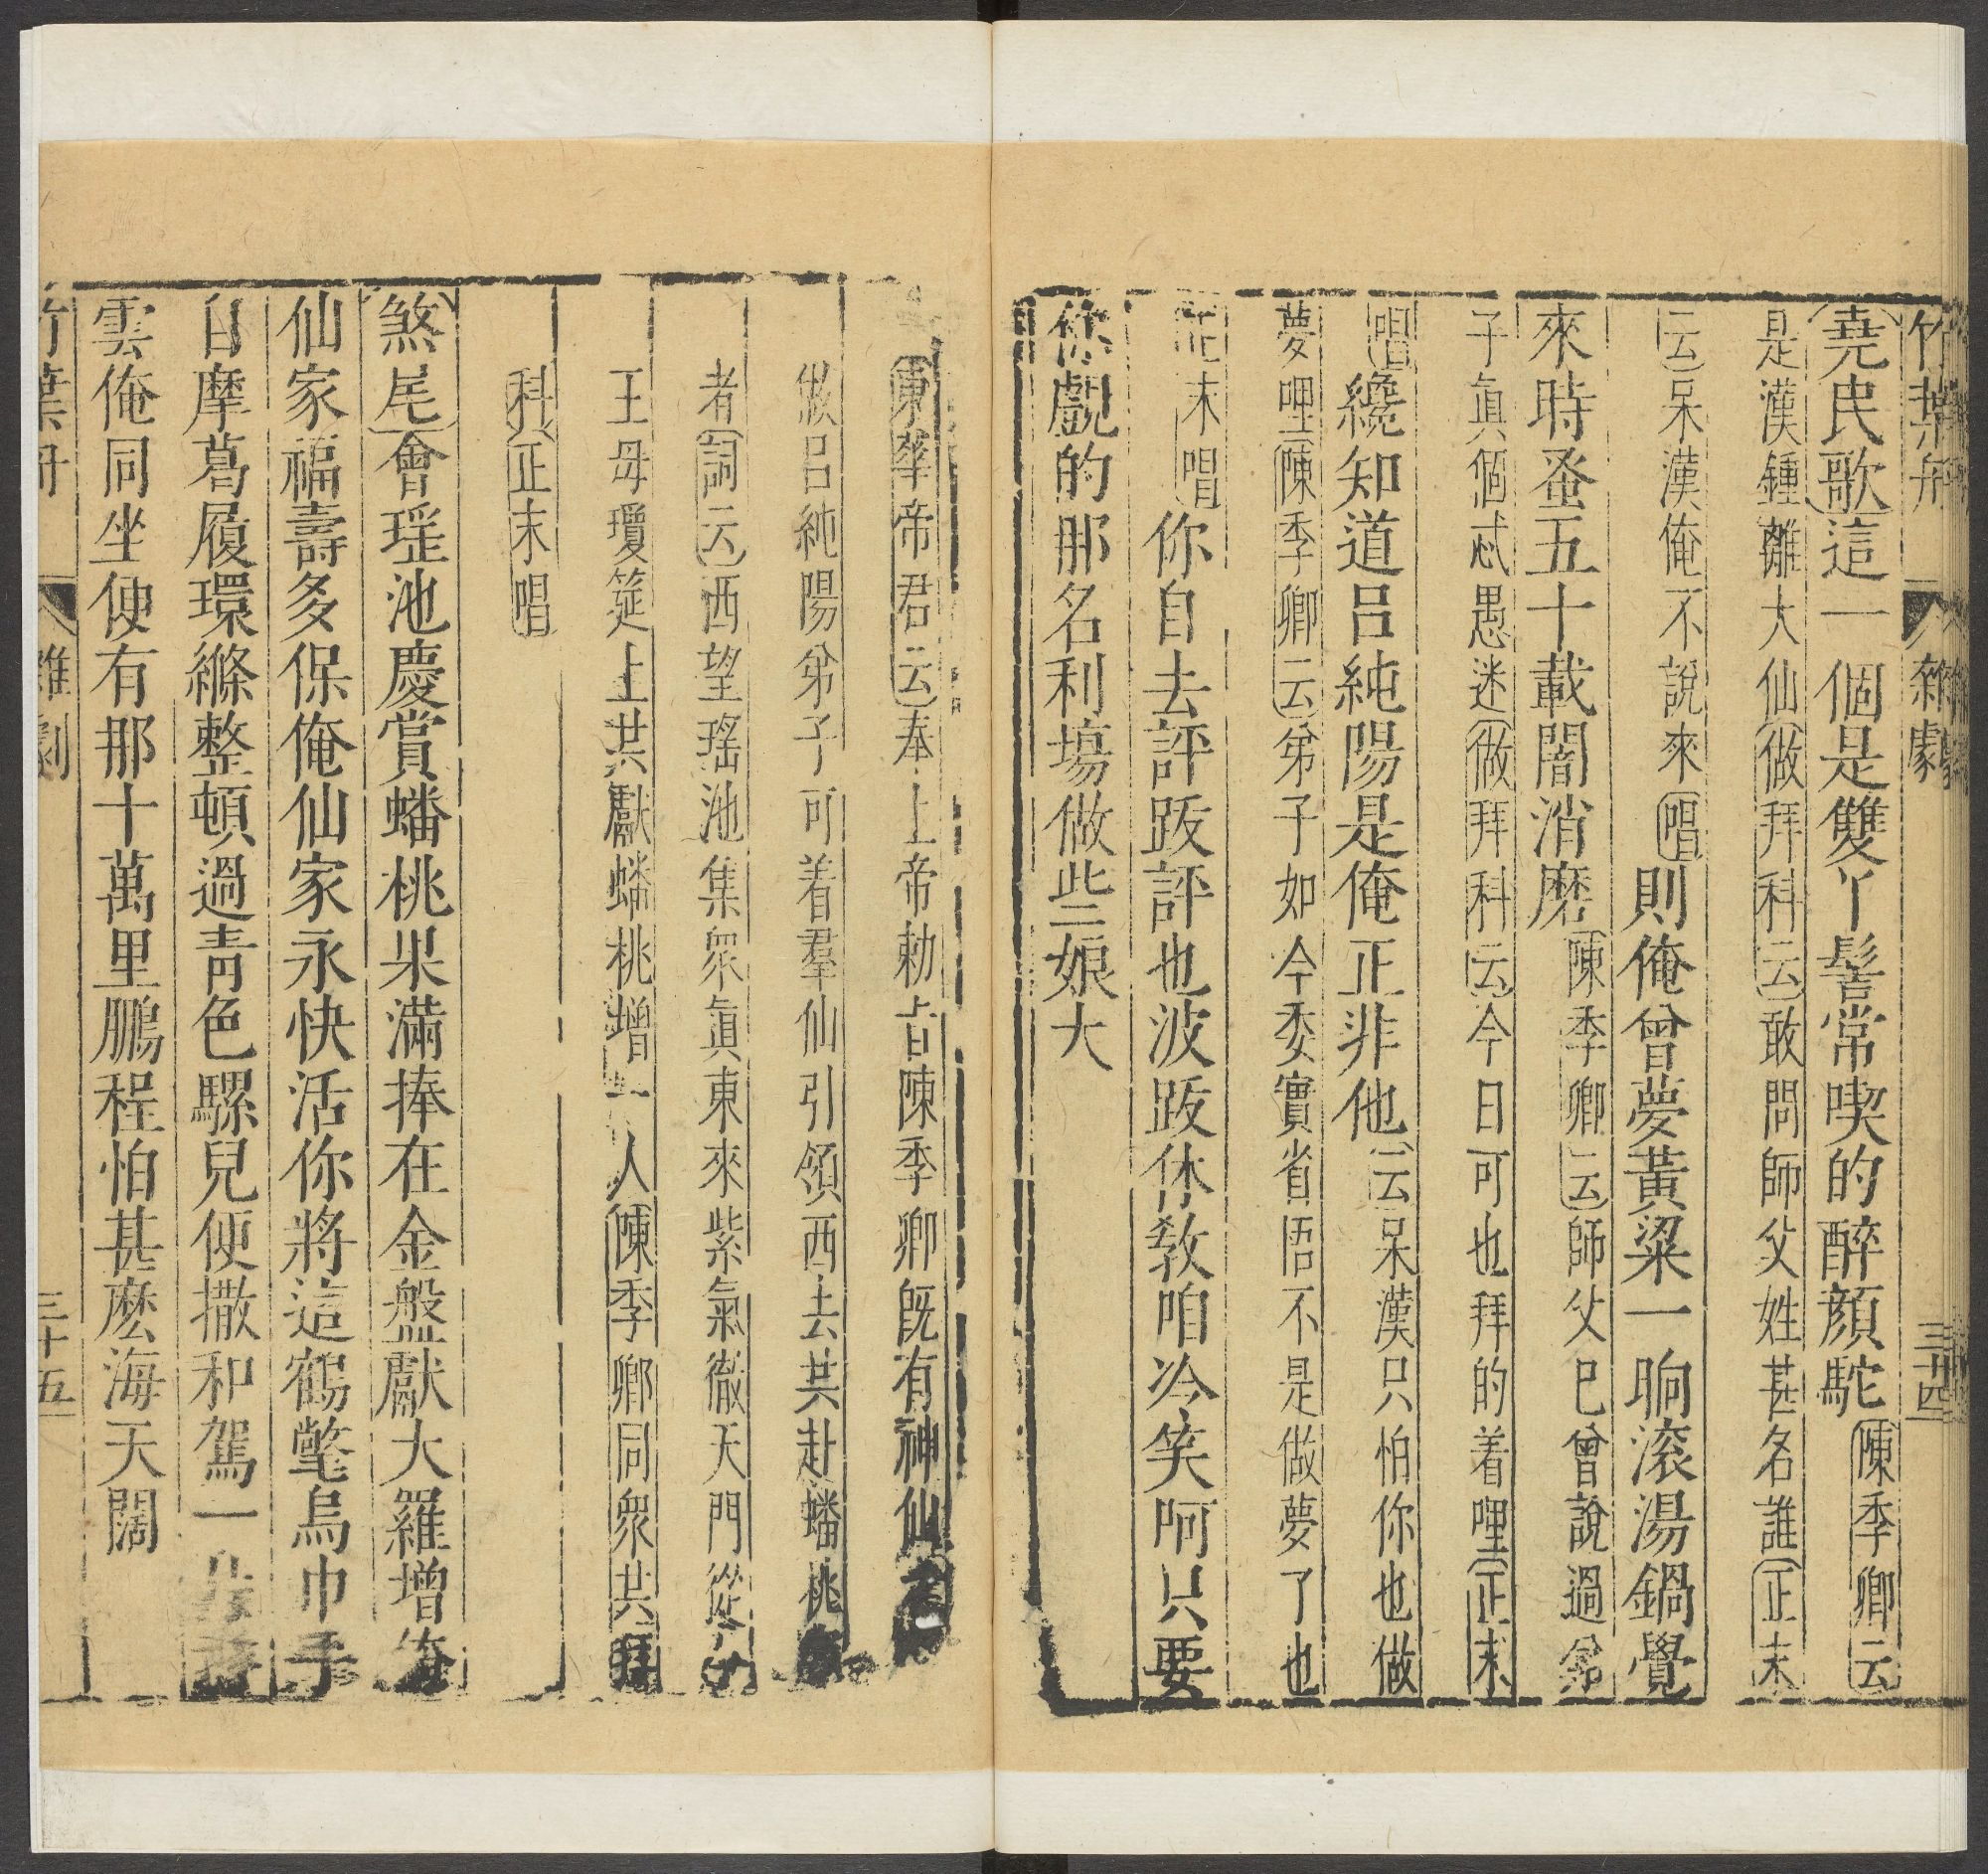 竹葉舟 雜劇 三十四
堯民歌這一個是雙丫髻常喫的醉顏駝陳季卿云
是漢鍾離大仙做拜科云敢問師父姓甚名誰正末
云呆漢俺不說來唱則俺曾夢黃粱一晌滾湯鍋覺
來時蚤五十載闇消磨陳季卿云師父已曾說過弟
子真個忒愚迷做拜科云今日可也拜的着哩正末
唱纔知道呂純陽是俺正非他云呆漢只怕你也做
夢哩陳季卿云弟子如今委實省悟不是做夢了也
正末唱你自去評跋評也波跋休教咱冷笑呵只要
你覷的那名利場做些娘大
東華帝君云奉上帝勅旨陳季卿既有神仙
做呂純陽弟子可着羣仙引領西去共赴蟠桃
者詞云西望瑤池集衆真東來紫氣徹天門從
王母瓊筵上共獻蟠桃增一人陳季卿同衆共拜
科正末唱
煞尾會瑤池慶賞蟠桃果滿捧在金盤獻大羅增俺
仙家福壽多保俺仙家永快活你將這鶴氅烏巾手
自摩葛履環縧整頓過青色騾兒便撒和駕一片
雲俺同坐便有那十萬里鵬程怕甚麽海天闊
竹葉舟 雜劇 三十五